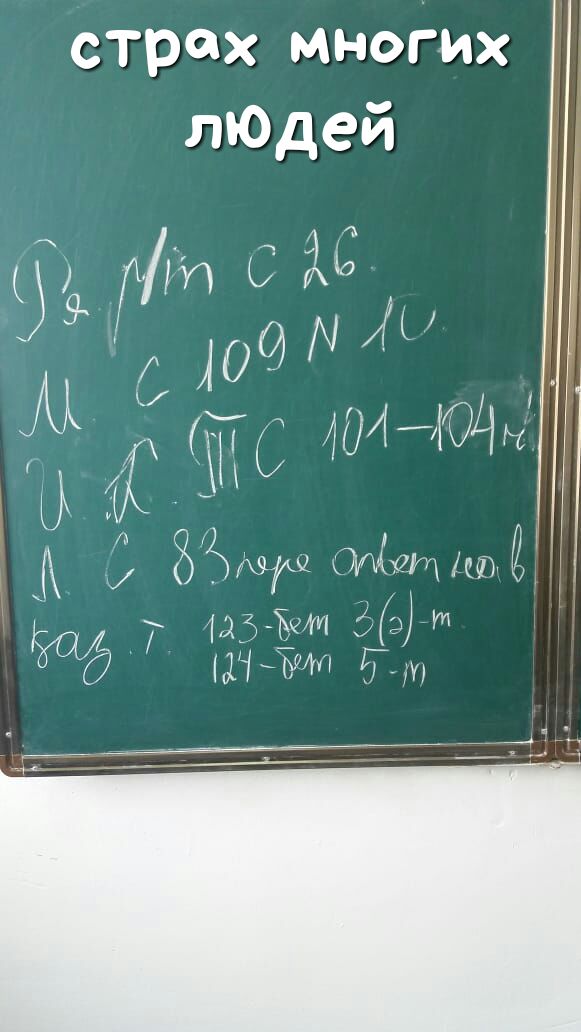 страх многих
людей
Ря. р/т С 26.
М. С 109 N
И.К. Т С 101–104
Л. С 83 пере ответ на в
Каз. Т. 123-бет 3(ә)-т.
124-бет 5-т